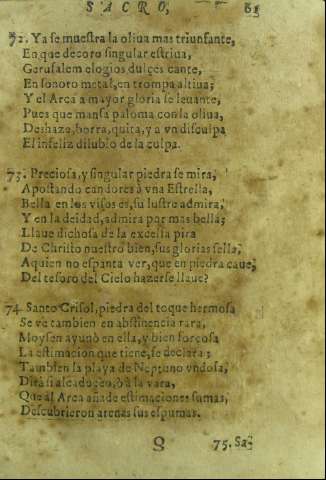 SACRO, 61
72. Ya se muestra la oliua mas triunfante,
En que decoro singular estriua,
Gerusalem elogios dulçes cante,
En sonoro metal, en trompa altiua;
Y el Arca a mayor gloria se leuante,
Pues que mansa paloma con la oliua,
Deshaze, borra, quita, y a vn disculpa
El infeliz dilubio de la culpa.
73. Preciosa, y singular piedra se mira,
Apostando candores à vna Estrella,
Bella en los visos es, su lustre admira,
Y en la deidad, admira por mas bella;
Llaue dichosa de la excelsa pira
De Christo nuestro bien, sus glorias sella,
Aquien no espanta ver, que en piedra caue,
Del tesoro del Cielo hazerse llaue?
74 Santo Crisol, piedra del toque hermosa
Se ve tambien en abstinencia rara,
Moysen ayunò en ella, y bien forçosa
La estimacion que tiene, se declara;
Tambien la playa de Neptuno vndosa,
Dirà si al cadoceo, ò à la vara,
Que al Arca añade estimaciones sumas,
Descubrieron arenas sus espumas.
G 75. Sa-